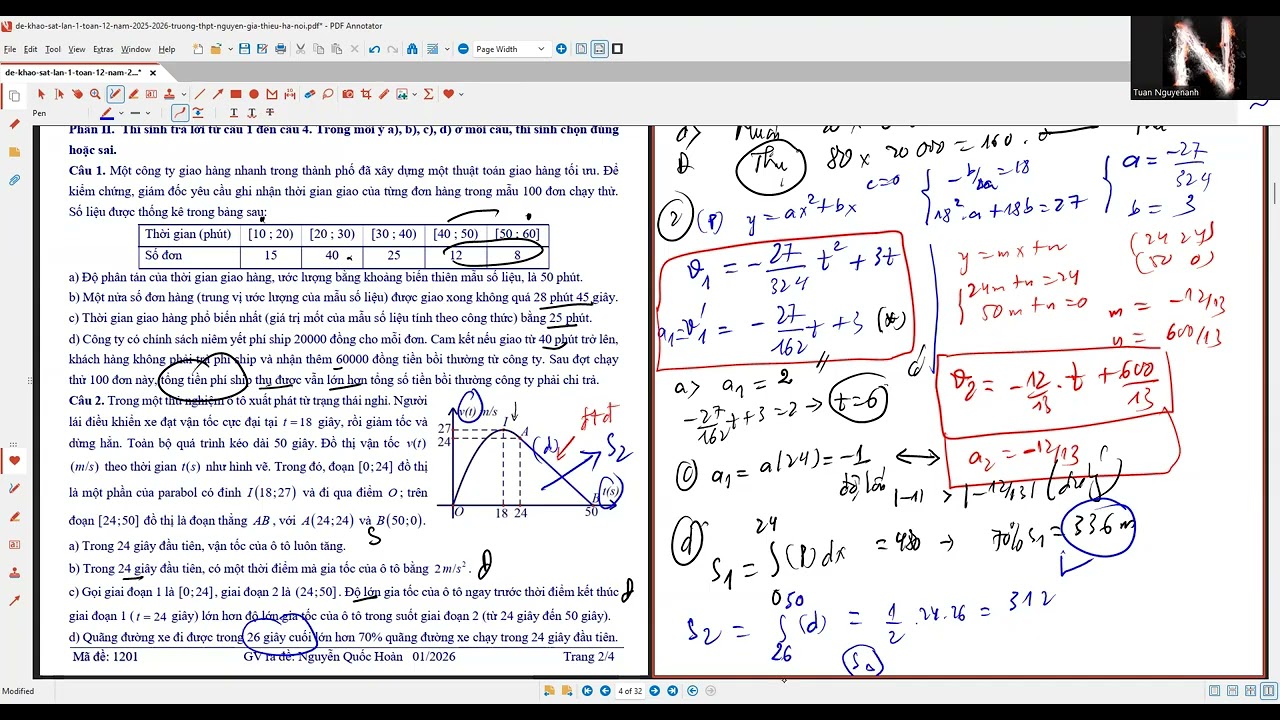 de-khao-sat-lan-1-toan-12-nam-2025-2026-truong-thpt-nguyen-gia-thieu-ha-noi.pdf* - PDF Annotator
File Edit Tool View Extras Window Help
Page Width
de-khao-sat-lan-1-toan-12-nam-2...* ×
Pen
Tuan Nguyenanh
Phần II. Thí sinh trả lời từ câu 1 đến câu 4. Trong mỗi ý a), b), c), d) ở mỗi câu, thí sinh chọn đúng
hoặc sai.
Câu 1. Một công ty giao hàng nhanh trong thành phố đã xây dựng một thuật toán giao hàng tối ưu. Để
kiểm chứng, giám đốc yêu cầu ghi nhận thời gian giao của từng đơn hàng trong mẫu 100 đơn chạy thử.
Số liệu được thống kê trong bảng sau:
Thời gian (phút) [10 ; 20) [20 ; 30) [30 ; 40) [40 ; 50) [50 ; 60]
Số đơn 15 40 25 12 8
a) Độ phân tán của thời gian giao hàng, ước lượng bằng khoảng biến thiên mẫu số liệu, là 50 phút.
b) Một nửa số đơn hàng (trung vị ước lượng của mẫu số liệu) được giao xong không quá 28 phút 45 giây.
c) Thời gian giao hàng phổ biến nhất (giá trị mốt của mẫu số liệu tính theo công thức) bằng 25 phút.
d) Công ty có chính sách niêm yết phí ship 20000 đồng cho mỗi đơn. Cam kết nếu giao từ 40 phút trở lên,
khách hàng không phải trả phí ship và nhận thêm 60000 đồng tiền bồi thường từ công ty. Sau đợt chạy
thử 100 đơn này, tổng tiền phí ship thu được vẫn lớn hơn tổng số tiền bồi thường công ty phải chi trả.
Câu 2. Trong một thử nghiệm ô tô xuất phát từ trạng thái nghỉ. Người
lái điều khiển xe đạt vận tốc cực đại tại t = 18 giây, rồi giảm tốc và
dừng hẳn. Toàn bộ quá trình kéo dài 50 giây. Đồ thị vận tốc v(t)
(m/s) theo thời gian t(s) như hình vẽ. Trong đó, đoạn [0;24] đồ thị
là một phần của parabol có đỉnh I(18;27) và đi qua điểm O; trên
đoạn [24;50] đồ thị là đoạn thẳng AB, với A(24;24) và B(50;0).
v(t) m/s
I
27
24
A
(d)
S2
B
t(s)
O 18 24 50
a) Trong 24 giây đầu tiên, vận tốc của ô tô luôn tăng. S
b) Trong 24 giây đầu tiên, có một thời điểm mà gia tốc của ô tô bằng 2m/s². đ
c) Gọi giai đoạn 1 là [0;24], giai đoạn 2 là (24;50]. Độ lớn gia tốc của ô tô ngay trước thời điểm kết thúc đ
giai đoạn 1 (t = 24 giây) lớn hơn độ lớn gia tốc của ô tô trong suốt giai đoạn 2 (từ 24 giây đến 50 giây).
d) Quãng đường xe đi được trong 26 giây cuối lớn hơn 70% quãng đường xe chạy trong 24 giây đầu tiên.
Mã đề: 1201 GV ra đề: Nguyễn Quốc Hoàn 01/2026 Trang 2/4
Thu 80 × 20 000 = 160.
c=0
② (P) y = ax² + bx
-b/2a = 18
18².a + 18b = 27
a = -27/324
b = 3
v1 = -27/324 t² + 3t
a1 = v1' = -27/162 t + 3 (*)
y = mx + n
(24 24)
(50 0)
24m + n = 24
50m + n = 0
m = -12/13
n = 600/13
d
v2 = -12/13 . t + 600/13
a2 = -12/13
a> a1 = 2
-27/162 t + 3 = 2 → t = 6
ⓒ a1 = a(24) = -1 ⟷
độ lớn |-1| > |-12/13| (đúng)
ⓓ S1 = ∫ 0 24 (P)dx = 480 → 70% S1 = 336 m
S2 = ∫ 26 50 (d) = 1/2 . 24 . 26 = 312
SΔ
Modified 4 of 32